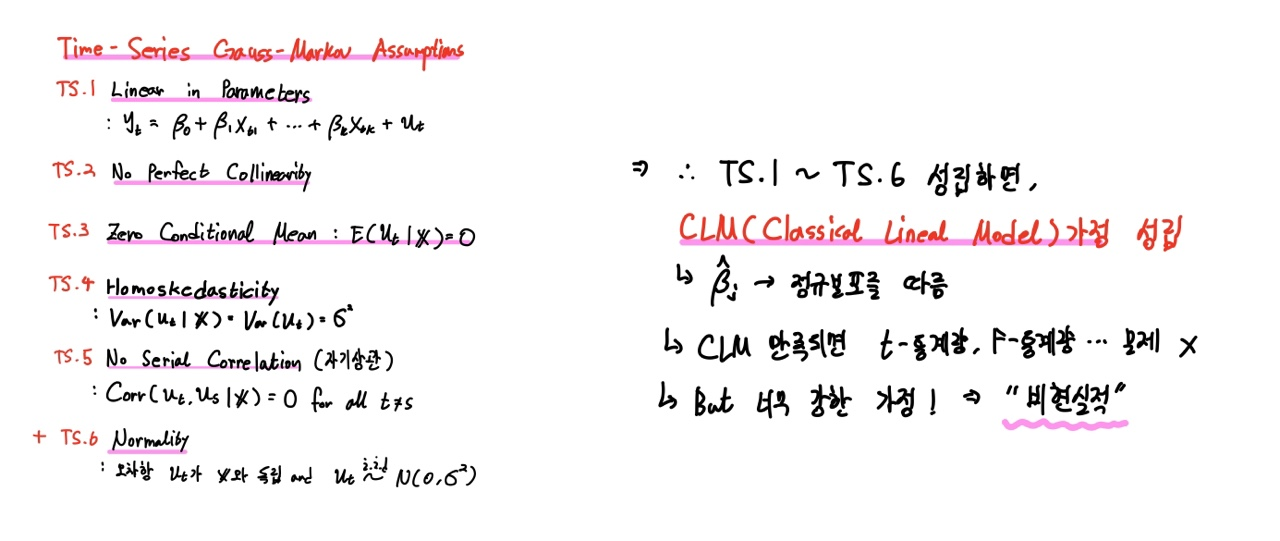 Time-Series Gauss-Markov Assumptions
TS.1 Linear in Parameters
: yₜ = β₀ + β₁Xₜ₁ + ⋯ + βₖXₜₖ + uₜ
TS.2 No Perfect Collinearity
TS.3 Zero Conditional Mean : E(uₜ|X)=0
TS.4 Homoskedasticity
: Var(uₜ|X) = Var(uₜ) = σ²
TS.5 No Serial Correlation (자기상관)
: Corr(uₜ, uₛ|X) = 0 for all t≠s
+ TS.6 Normality
: 오차항 uₜ가 X와 독립 and uₜ i.i.d ~ N(0,σ²)
⇒ ∴ TS.1 ~ TS.6 성립하면,
CLM(Classical Lineal Model)가정 성립
↳ β̂ⱼ → 정규분포를 따름
↳ CLM 만족되면 t-통계량, F-통계량 ⋯ 문제 X
↳ But 너무 강한 가정! ⇒ "비현실적"